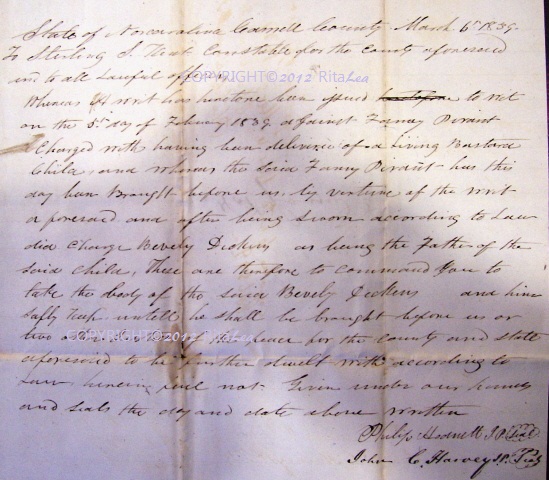 State of Norcarolina Caswell County March 6th 1839.
To Sterling S. Constable for the County aforesaid
and to all Lawful officers
COPYRIGHT©2012 RitaLea
Whereas A writ has heretofore been issued to wit
on the 5th day of February 1839 against Fanny Pirant
Charged with having been delivered of a living Bastard
Child and whereas the said Fanny Pirant has this
day been Braught before us by virtue of the writ
aforesaid and after being sworn according to Law
did Charge Bevely Dickens as being the Father of the
said Child, These are therefore to command you to
take the body of the said Bevely Dickens and him
safly Keep untell he shall be braught before us or
COPYRIGHT©2012 RitaLea
two of the peace for the county and state
aforesaid to be further dwelt with according to
Law herein fail not. Given under our hands
and seals the day and date above written
Philip Hodnett J.P. Seal
John C. Harvey J.P. Seal